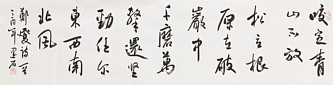 咬定青
山不放
松立根
原在破
巖中
千磨萬
擊還坚
勁任尔
東西南
北風
鄭燮詩